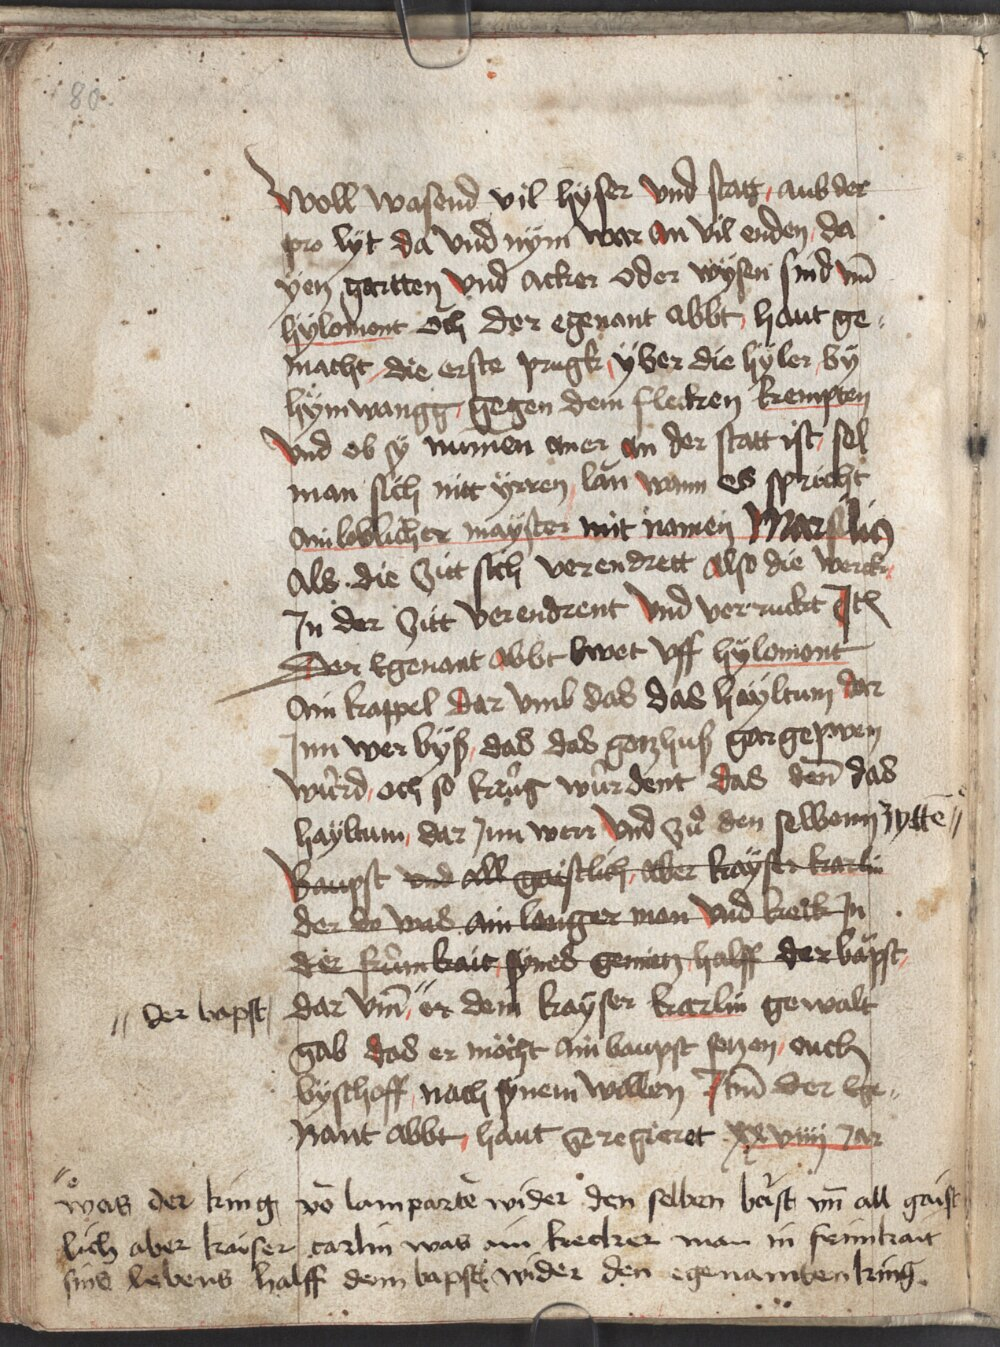 80
Woll wasend vil hyser vnd statg, aus der
pro lyt da vnd nÿm war an vil enden, da
ÿen gartten vnd acker oder wÿsen sind vm̄
hÿlomont och der egenant abbt, haut ge-
macht, die erste prugk, ÿber die hÿler, by
hÿmwangg, gegen dem flecken krempten
vnd ob sy numen aner an der statt ist, sol
man sich nitt ÿrren, lan wann es spricht
ain loblicher mayster mit namen Marsilius
Als die zitt sich verendrett also die werck,
In der zitt verendrent vnd verruckt Itē
Der egenant abbt bwet vff hÿlomont
ain kappel dar vmb das das hayltum dar
Inn wer byß, das das gotzhuß gar gepwen
würd, och so krüg würdent das den̄ das
hayltum, dar Inn werr vnd zů den selbenn zyttē //
Baupst vnd all gaistlich, aber kaÿser karlin
der do was ain langer man vnd keck In
der frümkait, synes gemietz, halff der bäpst,
// der bapst / dar vm̄ // er dem kaÿser karlin gewalt
gab das er mocht ain baupst setzen, ouch
byschoff, nach synem willen Itm̄ der Ege-
nant abbt, haut geregieret xxviiij Jar
// was der king vō lampartē wider den selben bäst vn̄ all gaist
lich aber kaiser carlin was ain kecker man in frimkait
sins lebens halff dem bapst wider den egenamten king.